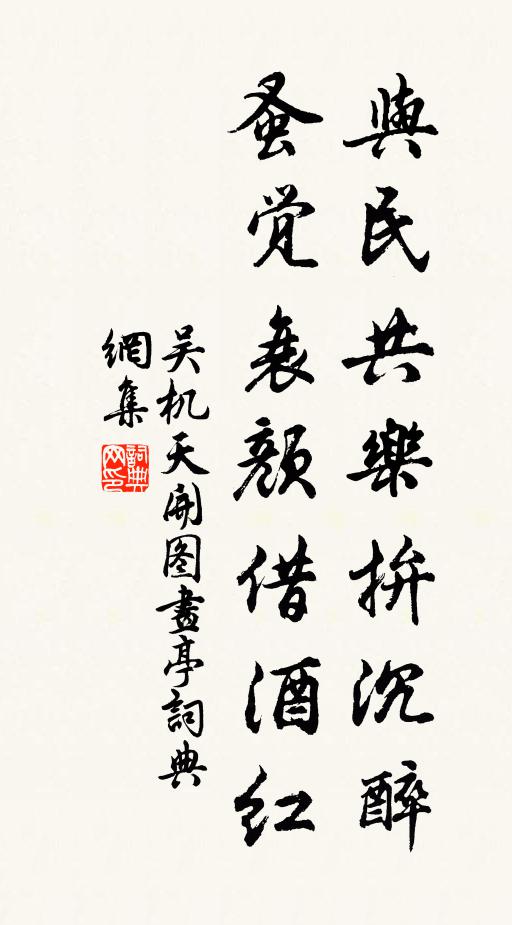 與民共樂拚沉醉
蚤觉衰颜借酒红
吴机天開图畫亭詞典
網集
詞典
网印